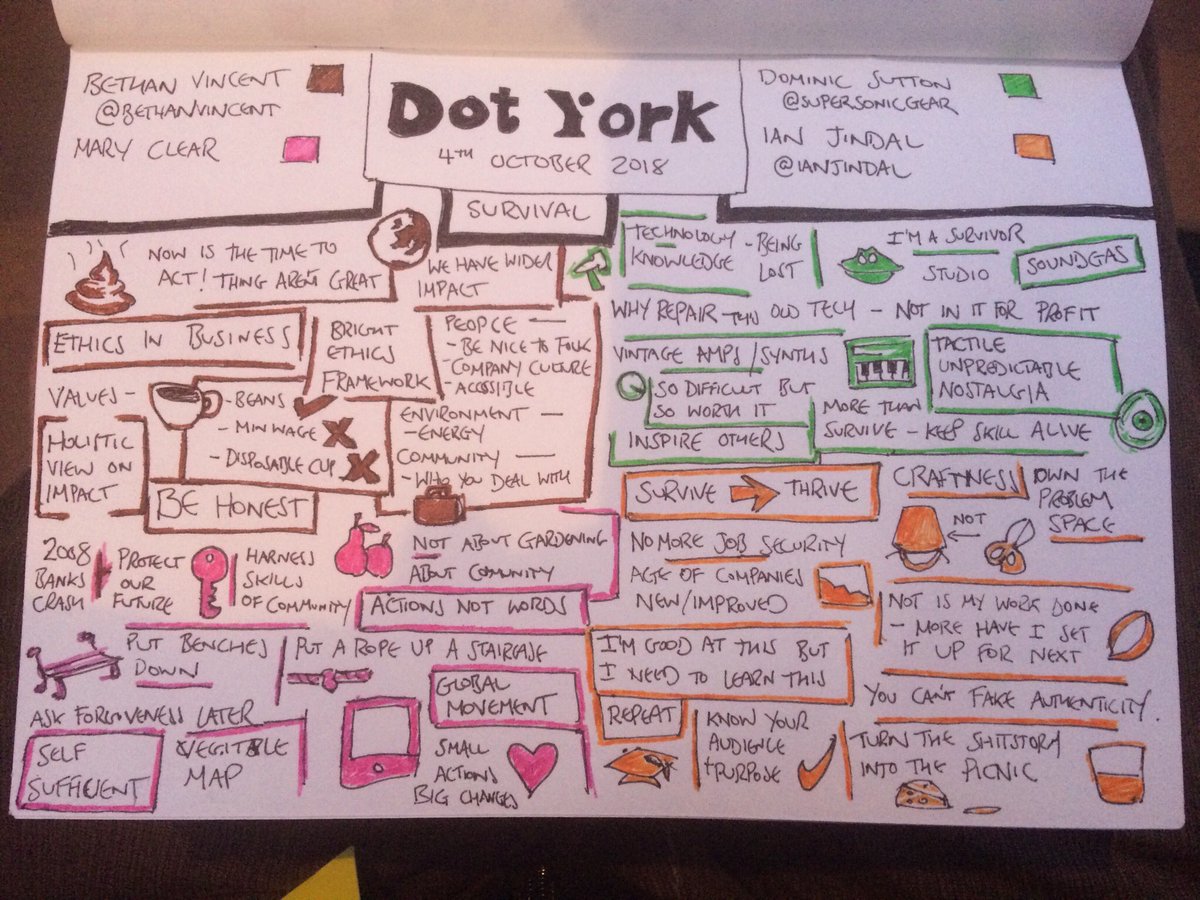 BETHAN VINCENT
@BETHANVINCENT
MARY CLEAR
Dot York
4TH OCTOBER 2018
DOMINIC SUTTON
@SUPERSONICGEAR
IAN JINDAL
@IANJINDAL
SURVIVAL
NOW IS THE TIME TO
ACT! THING AREN'T GREAT
WE HAVE WIDER
IMPACT
ETHICS IN BUSINESS
BRIGHT
ETHICS
FRAMEWORK
PEOPLE —
- BE NICE TO FOLK
- COMPANY CULTURE
- ACCSSIBLE
ENVIRONMENT —
- ENERGY
COMMUNITY —
- WHO YOU DEAL WITH
VALUES -
- BEANS
- MIN WAGE X
- DISPOSABLE CUP X
HOLISTIC
VIEW ON
IMPACT
BE HONEST
2008
BANKS
CRASH
PROTECT
OUR
FUTURE
HARNESS
SKILLS
OF COMMUNITY
NOT ABOUT GARDENING
ABOUT COMUNITY
ACTIONS NOT WORDS
PUT BENCHES
DOWN
PUT A ROPE UP A STAIRCASE
ASK FORGIVENESS LATER
GLOBAL
MOVEMENT
SELF
SUFFICIENT
VEGITABLE
MAP
SMALL
ACTIONS
BIG CHANGES
TECHNOLOGY - BEING
KNOWLEDGE LOST
I'M A SURVIVOR
STUDIO
SOUNDGAS
WHY REPAIR THIS OLD TECH - NOT IN IT FOR PROFIT
VINTAGE AMPS/SYNTHS
SO DIFFICULT BUT
SO WORTH IT
INSPIRE OTHERS
TACTILE
UNPREDICTABLE
NOSTALGIA
MORE THAN
SURVIVE - KEEP SKILL ALIVE
SURVIVE → THRIVE
CRAFTINESS
OWN THE
PROBLEM
SPACE
NOT
NO MORE JOB SECURITY
AGE OF COMPANIES
NEW/IMPROVED
NOT IS MY WORK DONE
- MORE HAVE I SET
IT UP FOR NEXT
I'M GOOD AT THIS BUT
I NEED TO LEARN THIS
REPEAT
YOU CAN'T FAKE AUTHENTICITY.
KNOW YOUR
AUDIENCE
+ PURPOSE
TURN THE SHITSTORY
INTO THE PICNIC